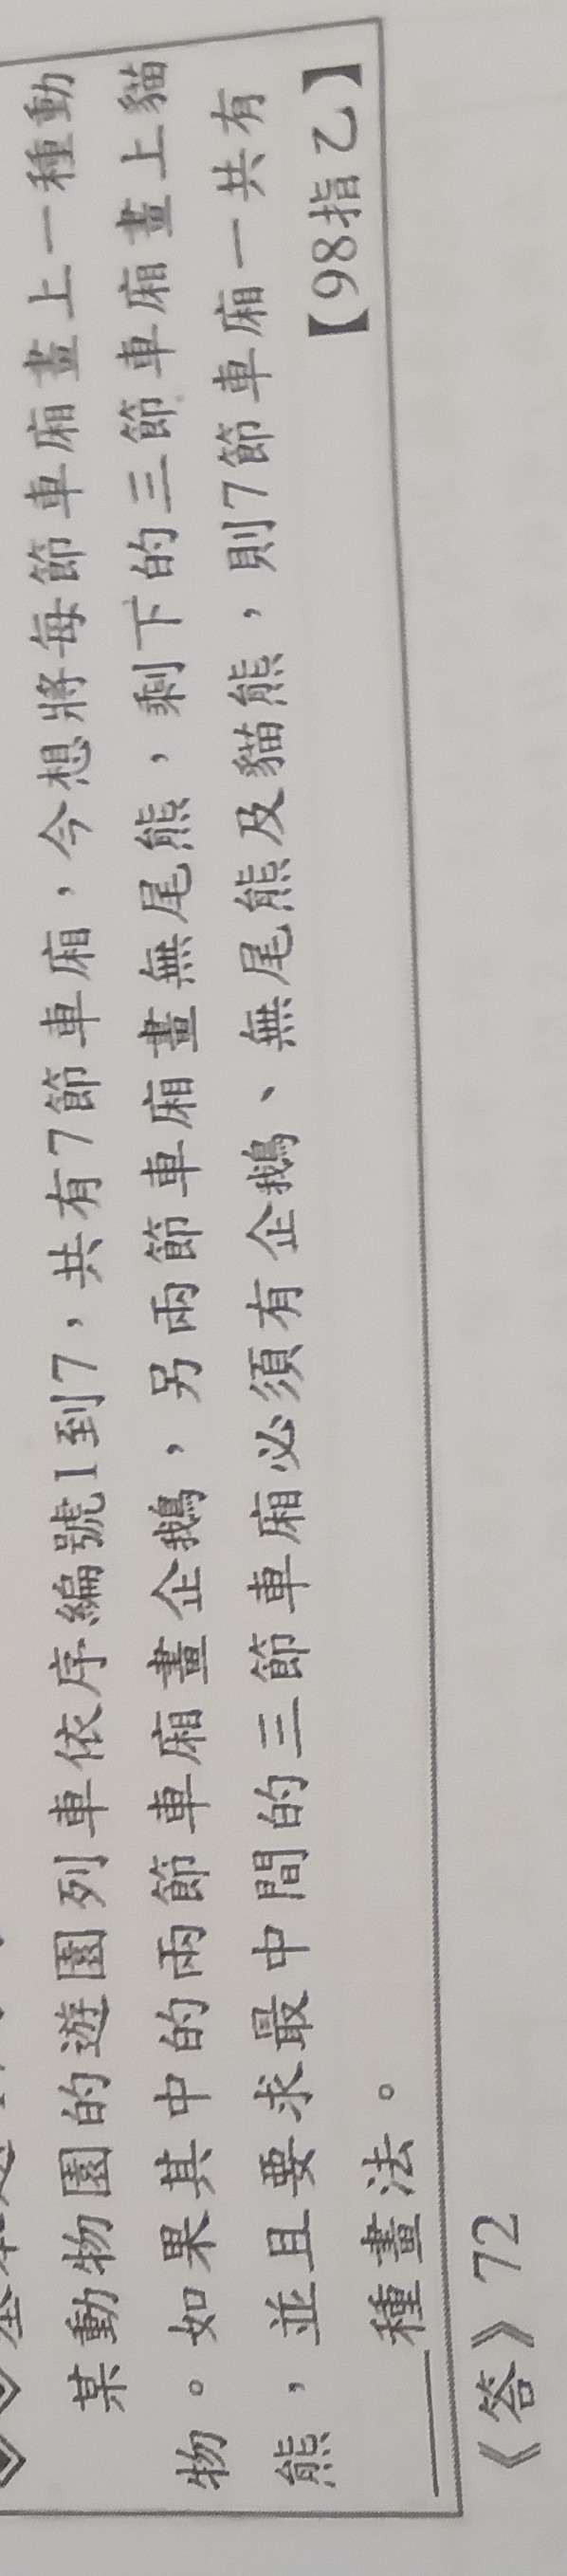 某動物園的遊園列車依序編號1到7，共有7節車廂，今想將每節車廂畫上一種動
物。如果其中的兩節車廂畫企鵝，另兩節車廂畫無尾熊，剩下的三節車廂畫上貓
熊，並且要求最中間的三節車廂必須有企鵝、無尾熊及貓熊，則7節車廂一共有
種畫法。
【98指乙】
《答》72